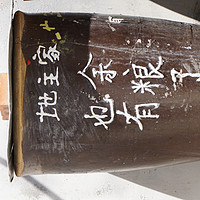 地主家
余粮
也有